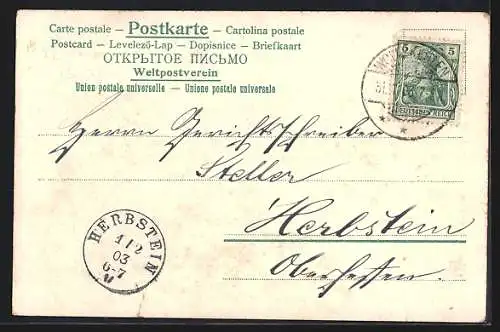 Carte postale – Postkarte – Cartolina postale
Postcard – Levelező-Lap – Dopisnice – Briefkaart
ОТКРЫТОЕ ПИСЬМО
Weltpostverein
Union postale universelle – Unione postale universale
5 5
DEUTSCHES REICH
Herrn Gerichtsschreiber
Steller
Herbstein
Oberhessen.
HERBSTEIN
1/2
03
6-7